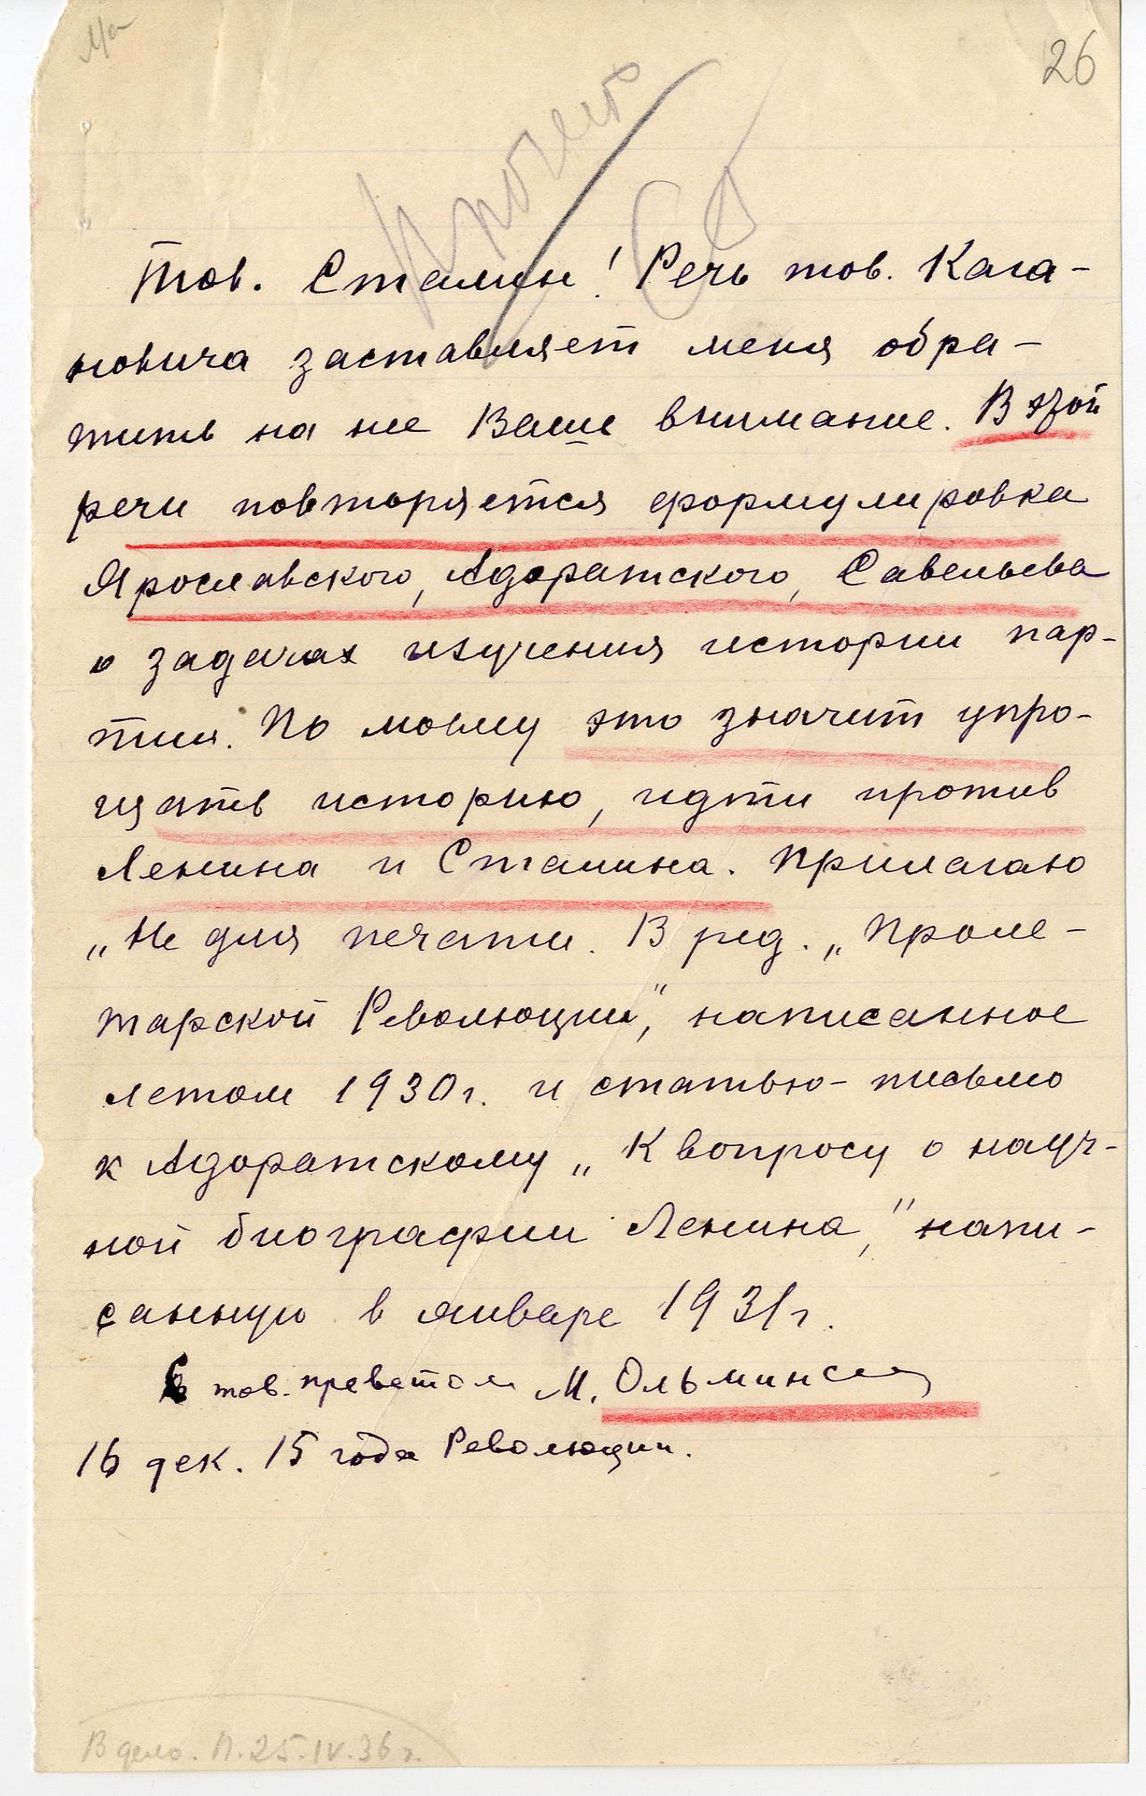 26
Прочет
Тов. Сталин! Речь тов. Кага-
новича заставляет меня обра-
тить на нее Ваше внимание. В этой
речи повторяется формулировка
Ярославского, Адоратского, Савельева
о задачах изучения истории пар-
тии. По моему это значит упро-
щать историю, идти против
Ленина и Сталина. Прилагаю
„Не для печати. В ред. „Проле-
тарской Революции“, написанное
летом 1930 г. и статью-письмо
к Адоратскому „К вопросу о науч-
ной биографии Ленина“, напи-
санную в январе 1931 г.
С тов. приветом М. Ольминский
16 дек. 15 года Революции.
В дело. П. 25.IV.36 г.